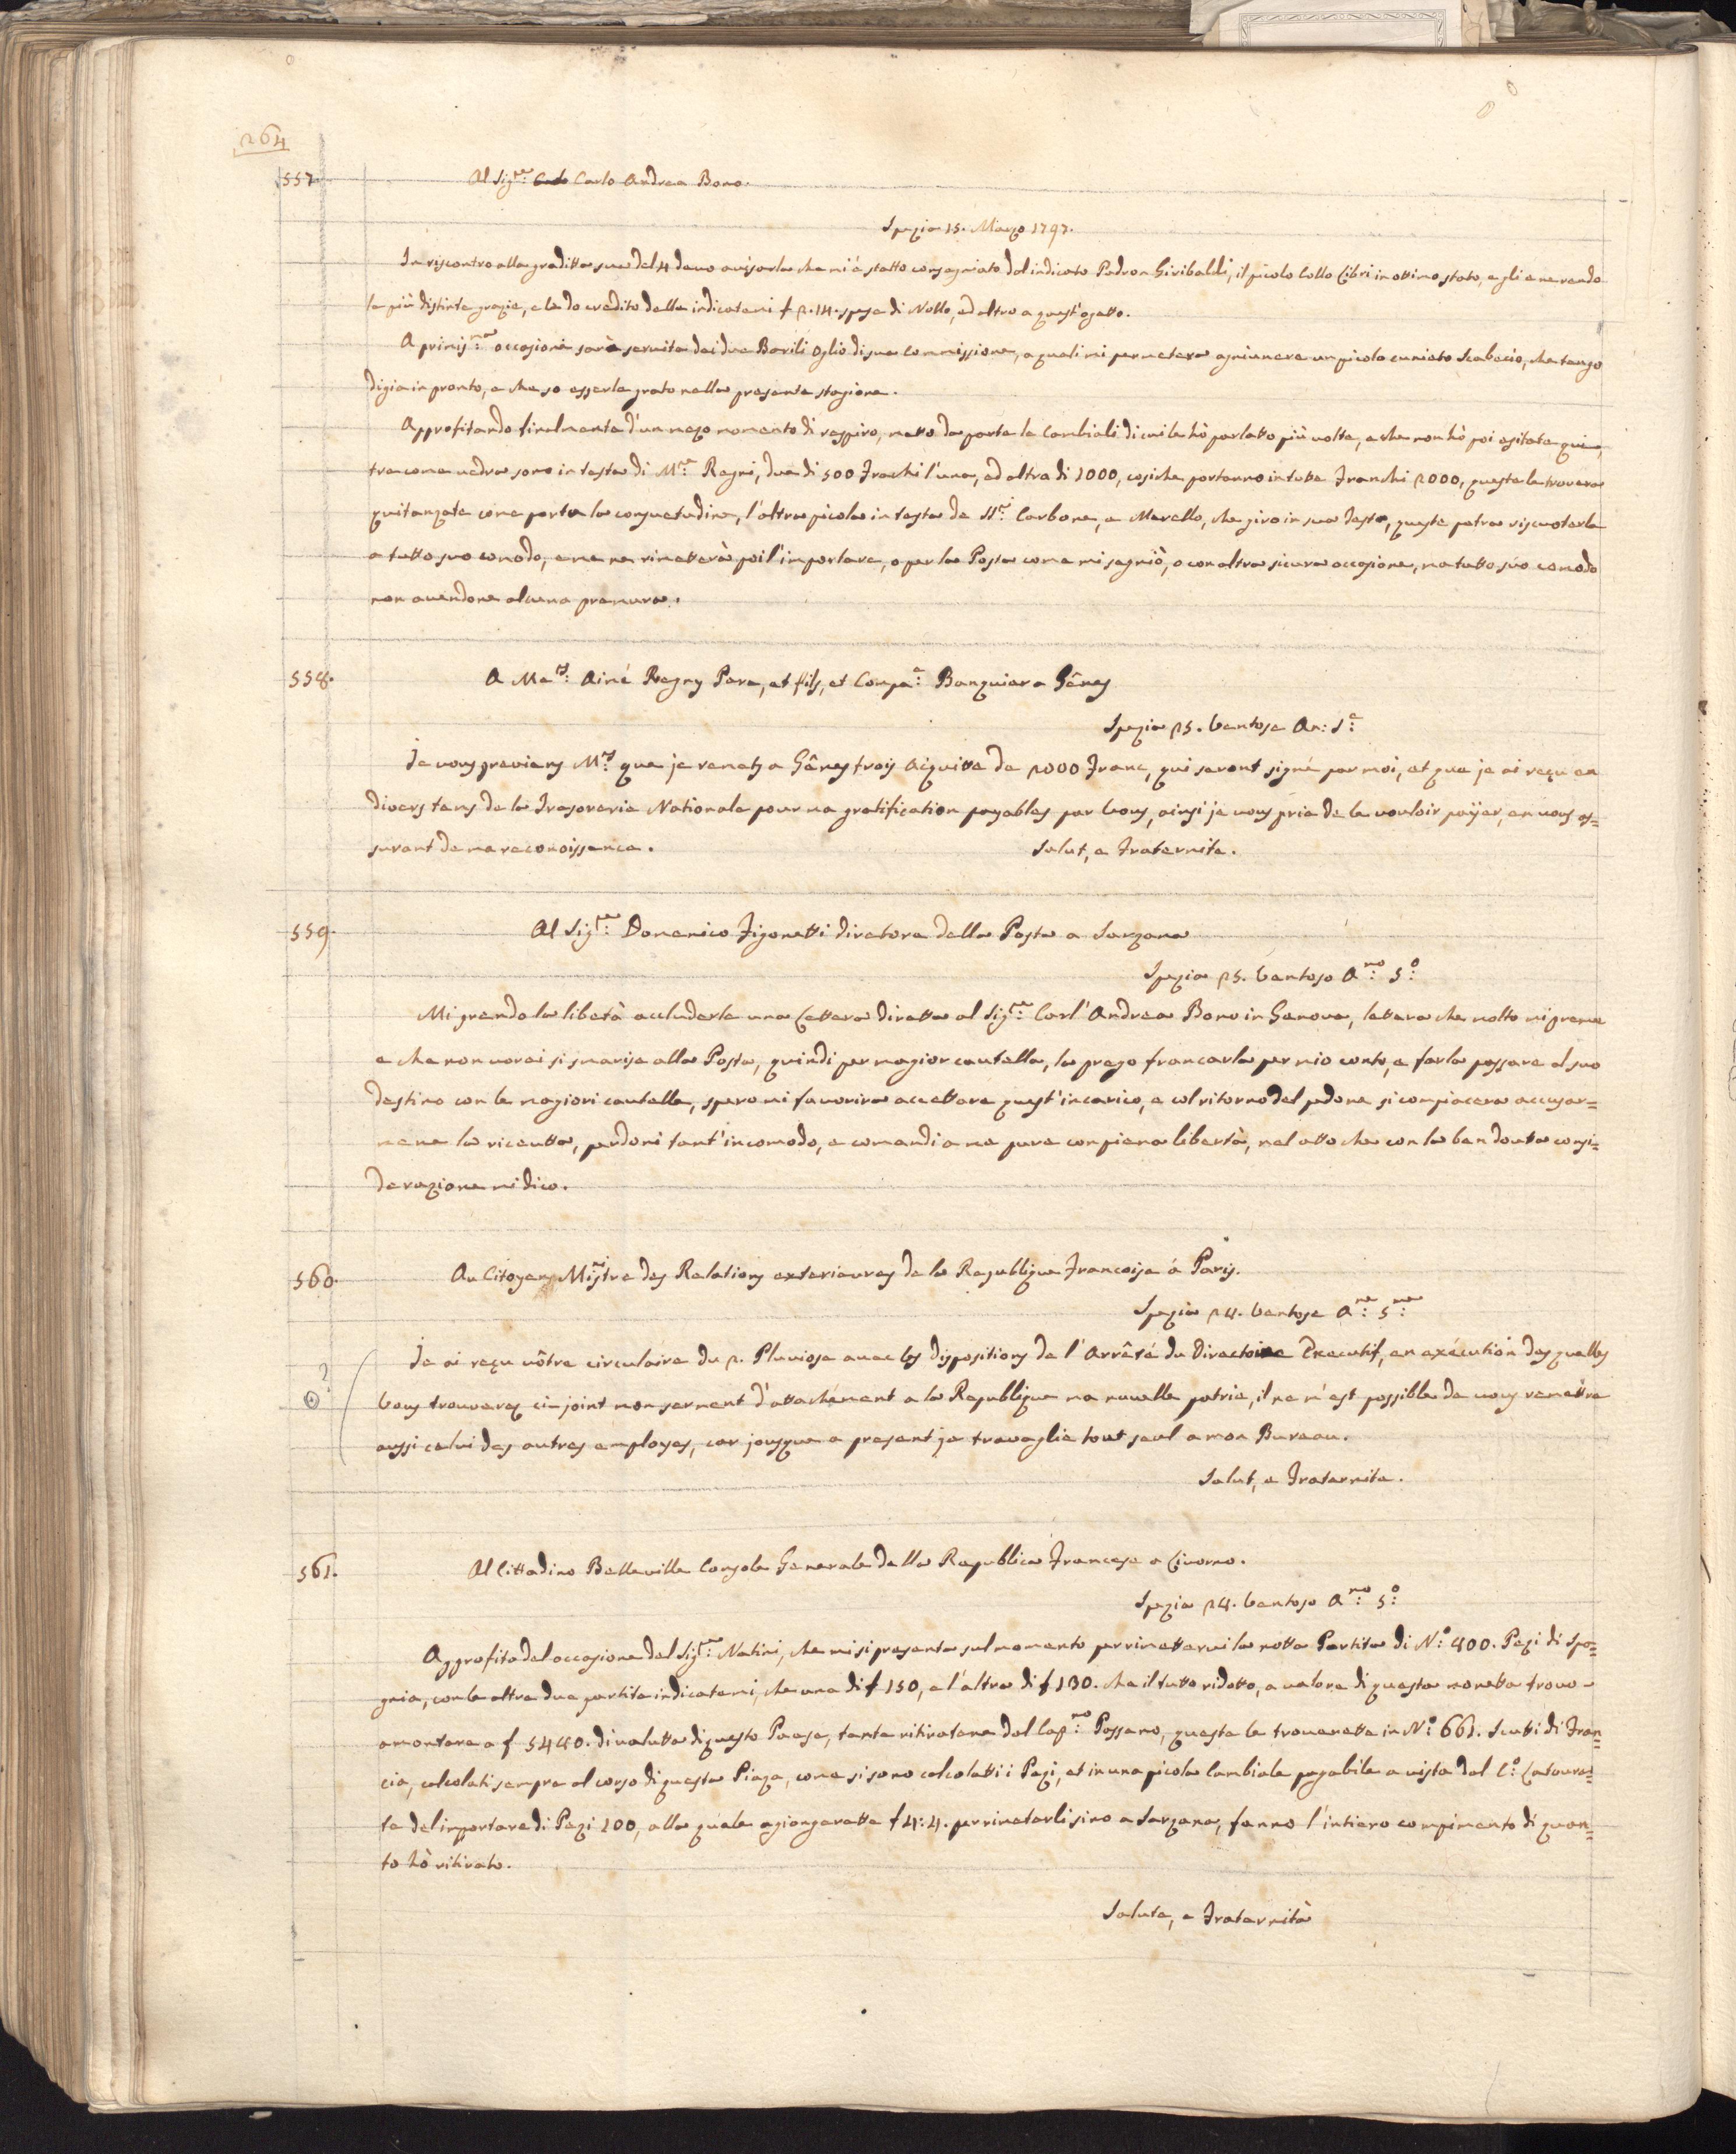 264
557. Al Sig.re Carlo Andrea Bono.
Spezia 15. Marzo 1797.
In riscontro alla graditta sua del 4 devo avisarla che mi é statto consegniato dal indicato Padron Giribaldi, il picolo Collo Libri in ottimo stato, e gli e ne rendo
le più distinte grazie, e le do credito delle indicatemi f 2.14. spese di Nollo, ed altro a quest'ogetto.
A primis.ma occasione sarà servita dei due Barili Oglio di sua Commissione, a quali mi permetera agniunere un picolo cunieto Scabecio, che tengo
digia in pronto, e che so esserle grato nella presente stagione.
Approfitando finelmente d'un mezo momento di respiro, metto da parte le Cambiali di cui le hò parlatto più volte, e che non hò poi esitate qui,
tre come vedra sono in testa di M.r Regni, due di 500 Franchi l'una, ed altra di 1000, cosiche portanno in tutte Franchi 2000, queste le trovera
quitanzate come porta la consuetudine, l'altra picola in testa de SS.ri Carbone, e Marello, che giro in sua Testa, queste potra riscuoterle
a tutto suo comodo, e me ne rimetterà poi l'importare, o per la Posta come mi segniò, o con altra sicura occasione, ma tutto súo comodo
non avendone alcuna premura.
558. A Me.rs Ainé Regny Pere, et fils, et Compa.e Banquier a Gênes
Spezia 25. Ventose An: 5.e
Je vous previens M.rs que je remets a Gênes trois Acquitte de 2000 Franc, qui seront signé par moi, et que je ai reçu en
divers tems de la Tresorerie Nationale pour ma gratification payables par Vous, ainsi je vous prie de le vouloir païer, en vous as=
surant de ma reconoissance. Salut, e Fraternite.
559. Al Sig.re Domenico Figonetti diretore della Posta a Sarzana
Spezia 25. Ventoso A.no 5.o
Mi prendo la libetà accluderle una Lettera diretta al Sig.re Carl'Andrea Bono in Genova, lettera che molto mi preme
e che non vorei si smarise alla Posta, quindi per magior cautella, la prego francarla per mio conto, e farla passare al suo
destino con le magiori cautelle, spero mi favorira accettare quest'incarico, e col ritorno del pedone si compiacera accusar=
mene la riceutta, perdoni tant'incomodo, e comandi a me pure con piena libertà, nel atto che con la ben douta consi=
derazione mi dico.
560. Au Citoyens Mistre des Relations exterieures de la Republique Francoise á Paris.
Spezia 24. Ventose A.ne 5.me
Je ai reçu vôtre circulaire du 2. Pluviose avec les dispositions de l'Arrêté du Directoire Executif, en exécution des quelles
Vous trouveres ci-joint mon serment d'attachément a la Republique ma nuvelle patrie, il ne m'est possible de vous remettre
aussi celui des autres employes, car jousque a present je travaglie tout seul a mon Bureau.
Salut, e Fraternite.
561. Al Cittadino Belleville Console Generale della Republica Francese a Livorno.
Spezia 24. Ventoso A.no 5.o
Approfito del occasione del Sig.re Natini, che mi si presenta sul momento per rimettervi la notta Partita di N.o 400. Pezi di Spa=
gnia, con le altre due partite indicatemi, che una di f 150, e l'altra di f 130. che il tutto ridotto, a valore di questa monetta trovo
amontare a f 5440. di valutta di questo Paese, tante ritiratene dal Cap.no Possano, queste le troverette in N.o 661. Scutti di Fran=
cia, calcolati sempre al corso di questa Piaza, come si sono calcolatti i Pezi, et in una picola Cambiale pagabile a vista dal C.o Latoure=
te del importare di Pezi 100, alla quale agiongerette f 4:4. per rimetarli sino a Sarzana, fanno l'intiero compimento di quan=
to hò ritirato.
Salute, e Fraternità